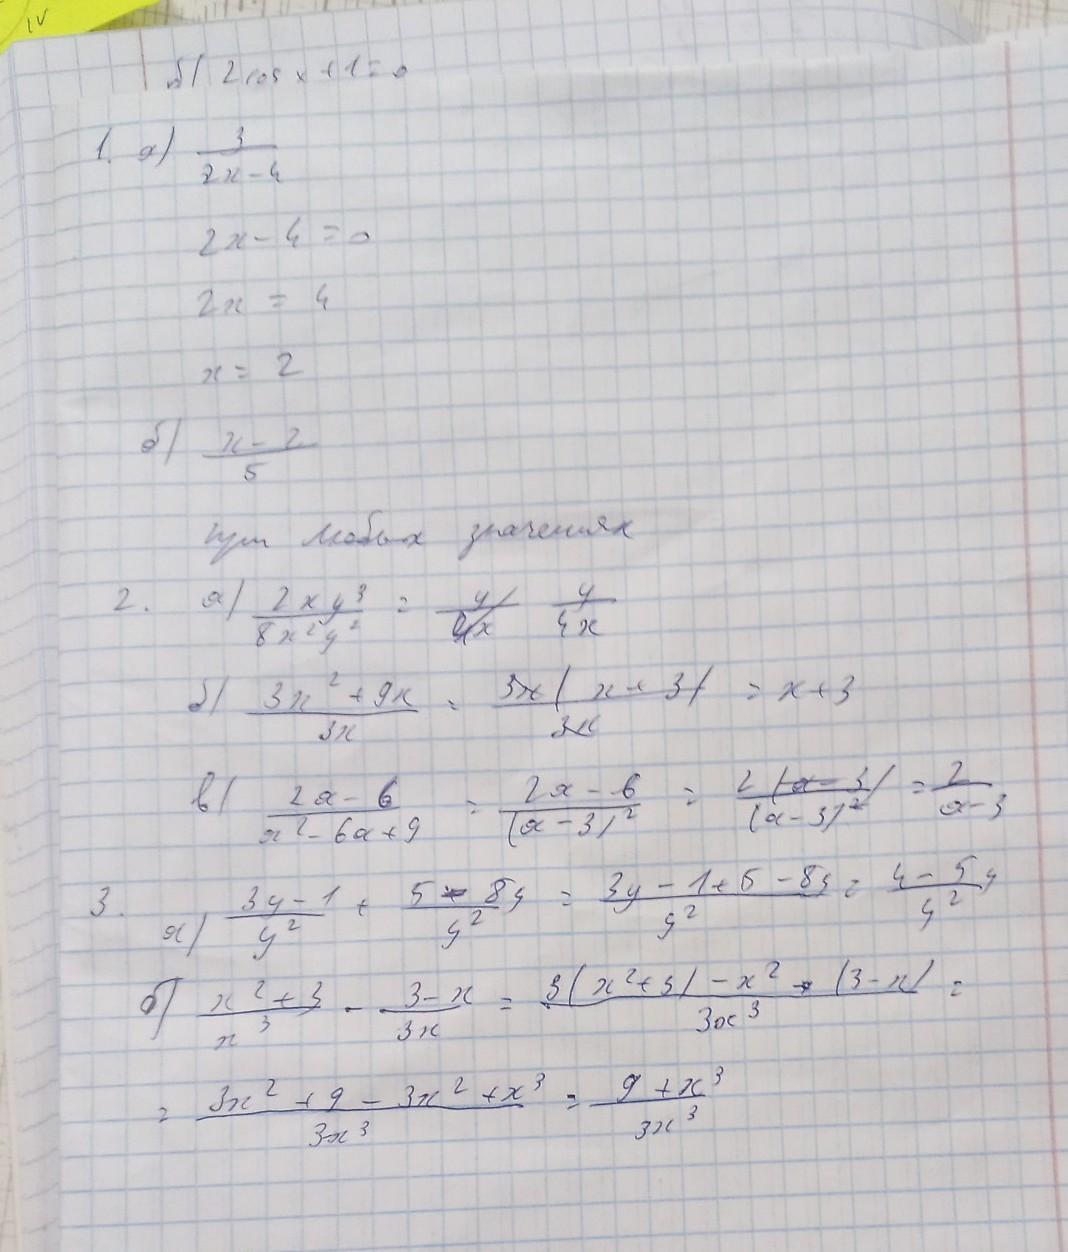 IV
б) 2cos x + 1 = 0
1. а) 3/(2x - 4)
2x - 4 = 0
2x = 4
x = 2
б) (x - 2)/5
при любых значениях
2. а) 2xy³/(8x²y²) = y/(4x) y/(4x)
б) (3x² + 9x)/(3x) = 3x(x + 3)/(3x) = x + 3
в) (2a - 6)/(a² - 6a + 9) = (2a - 6)/(a - 3)² = 2(a - 3)/(a - 3)² = 2/(a - 3)
3. а) (3y - 1)/y² + (5 - 8y)/y² = (3y - 1 + 5 - 8y)/y² = (4 - 5y)/y²
б) (x² + 3)/x³ - (3 - x)/(3x) = (3(x² + 3) - x² · (3 - x))/(3x³) =
= (3x² + 9 - 3x² + x³)/(3x³) = (9 + x³)/(3x³)